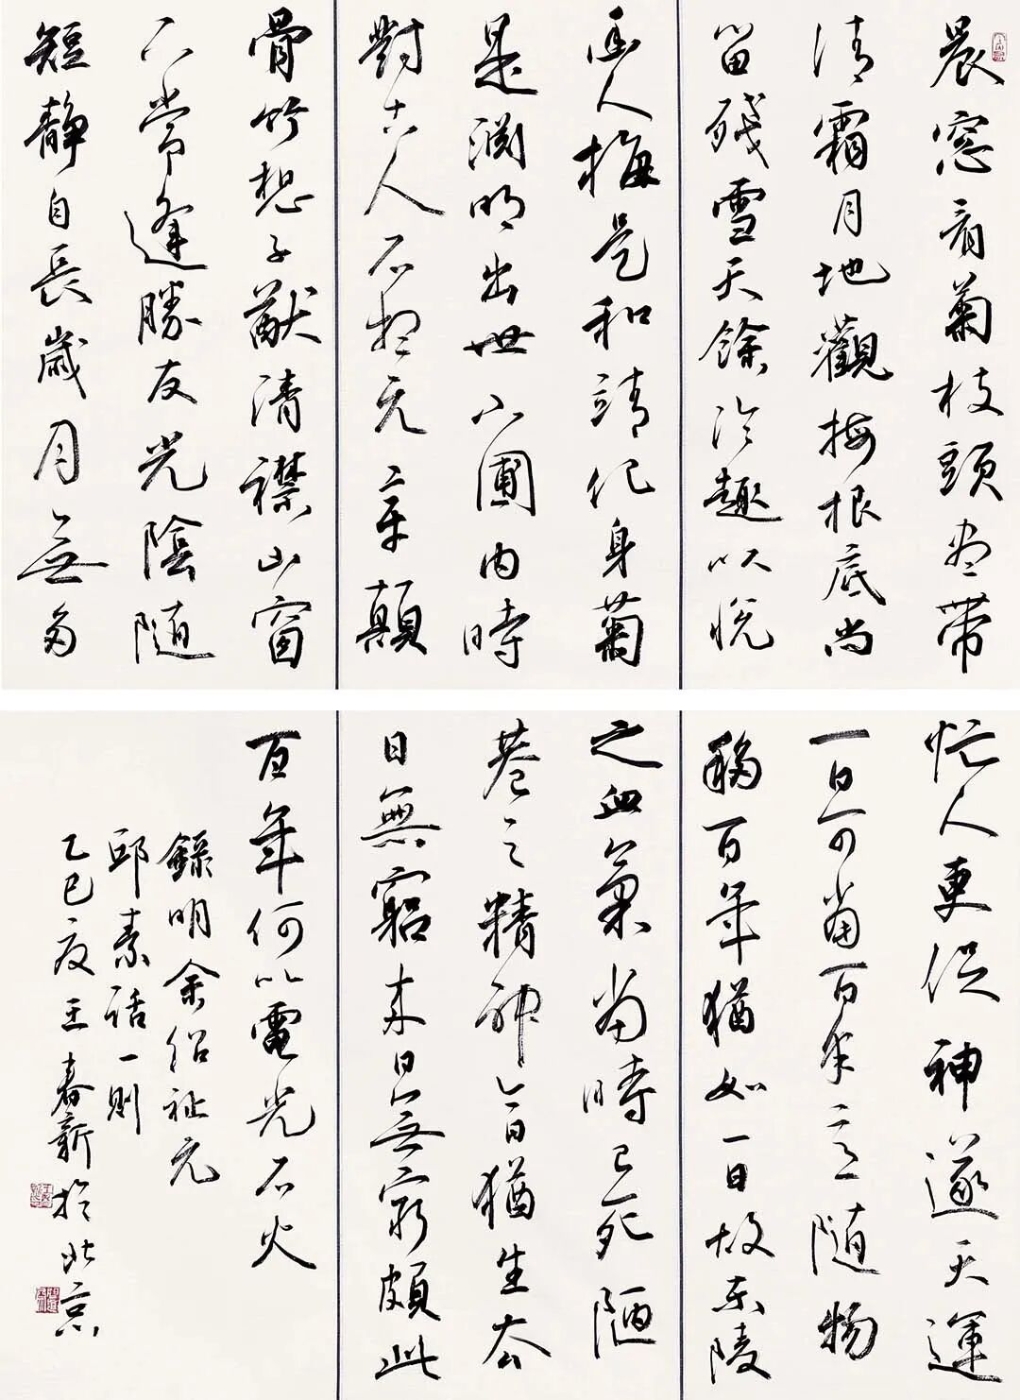 晨窓看菊枝頭盡帶
清霜月地觀梅根底尚
留殘雪天餘冷趣以悅
幽人梅是和靖化身菊
是淵明出世小圃內時
對古人石想元章顛
骨竹想子猷清襟山窗
下常逢勝友光陰隨
短靜自長歲月無多
忙人更促神遂天運
一日可當百年意隨物
移百年猶如一日故東陵
之血氣當時已死陋
巷之精神今日猶生去
日無窮來日無窮顧此
百年何以電光石火
錄明余紹祉元
邱素話一則
乙巳夏王春新於北京